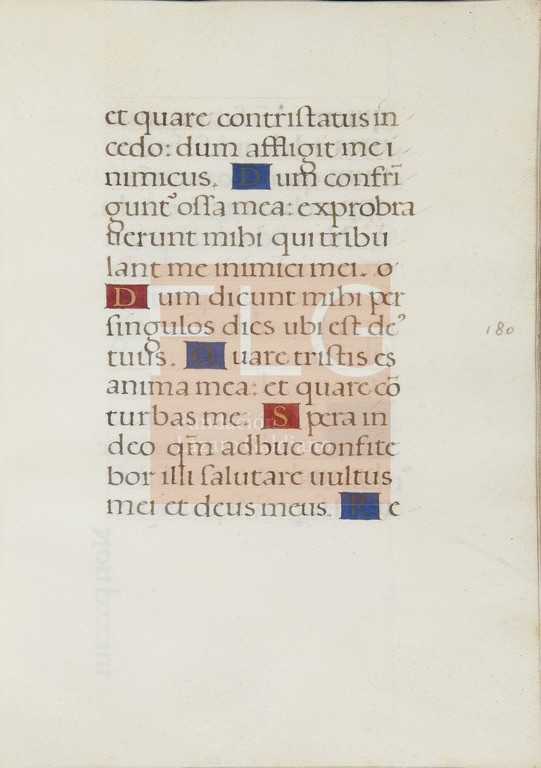 et quare contristatus in
cedo: dum affligit me i
nimicus. Dum confrī
gunt' ossa mea: exprobra
uerunt mihi qui tribu
lant me inimici mei. o'
Dum dicunt mihi per
singulos dies ubi est de'
tuus. Quare tristis es
anima mea: et quare cō
turbas me. Spera in
deo qm̄ adhuc confite
bor illi salutare uultus
mei et deus meus. Re
180
FLG